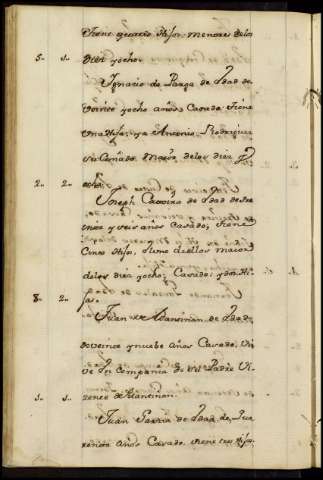 tiene quatro Hijos menores delos
5. 1. Diez yocho.
Ignacio de Parga de Edad de
veinte yocho años Casado tiene
una Hija, y a Antonio Rodriguez
su Cuñado maior delos diez y
2. 2. ocho.
Joseph Caveiro de Edad de
y seis años Casado, tiene
Cinco Hijos, el uno de ellos maior
delos diez yocho; Casado; y dos Hi
8. 2. jas.
Juan de Mantiñan de Edad
de veinte ynuebe años Casado Vi
ve en Compania de su Padre Vi
5. 1. zente de Mantiñan.
Juan Garcia de Edad de Qua
renta años Casado tiene tres Hijos